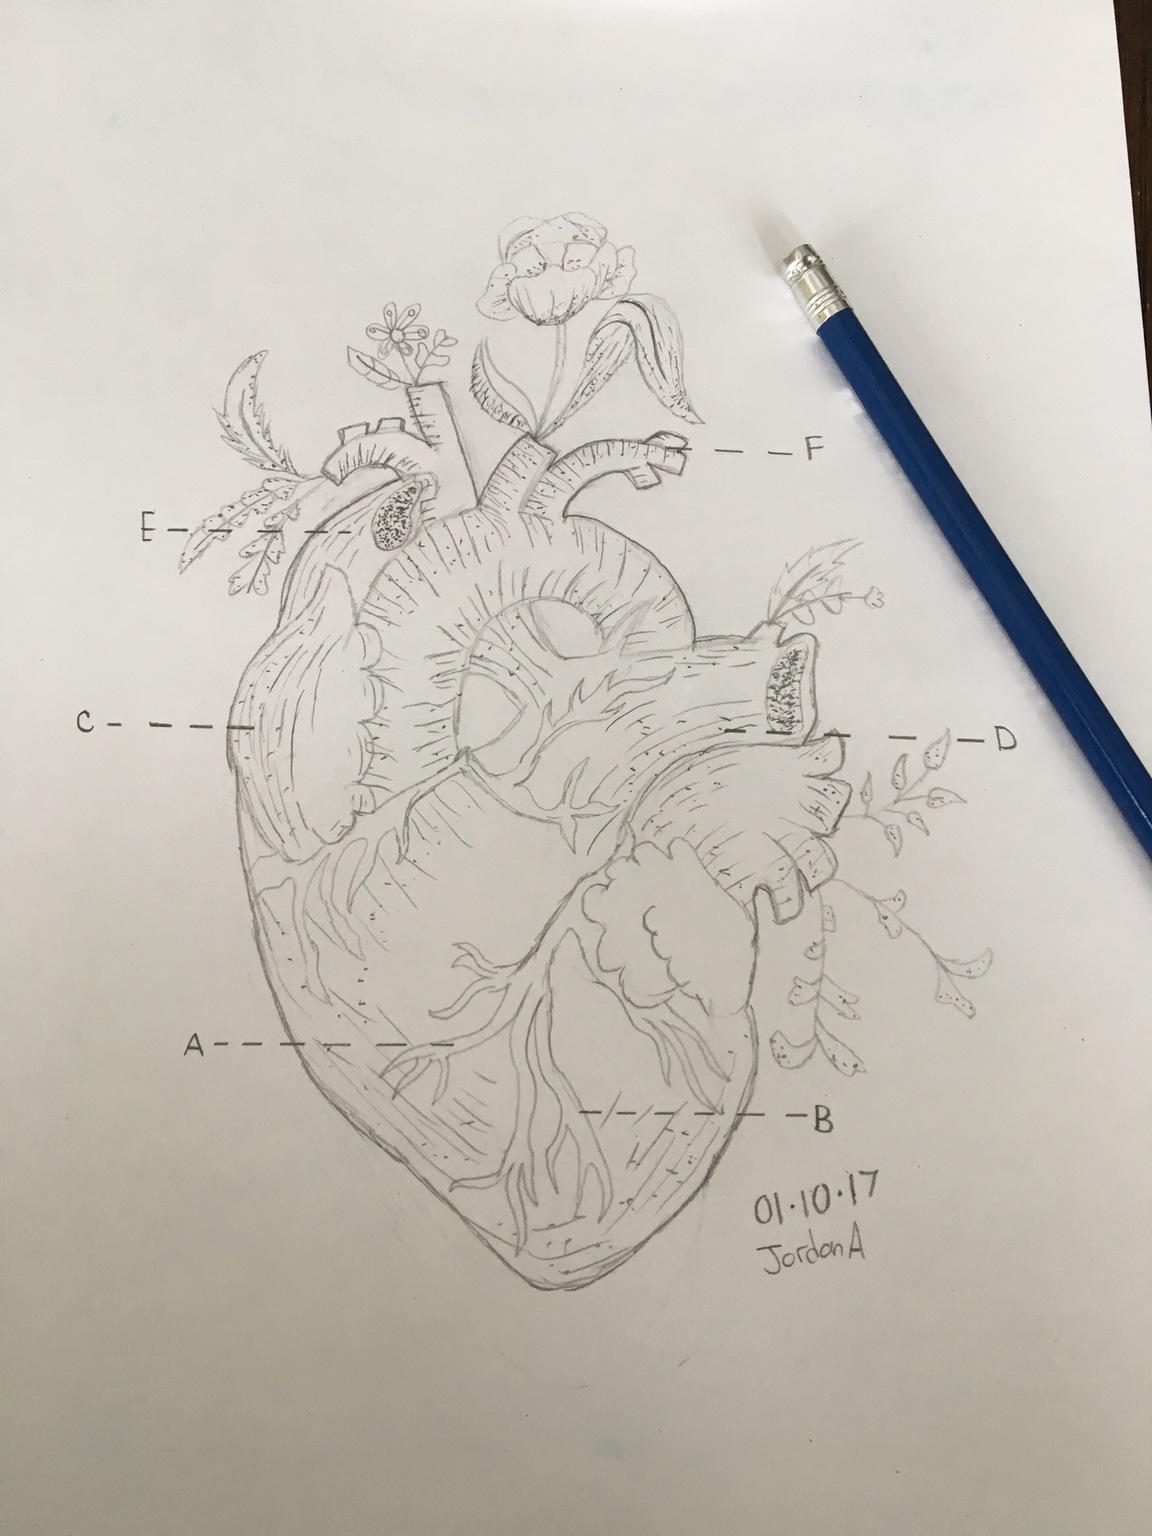 F
E
C
D
A
B
01.10.17
Jordan A